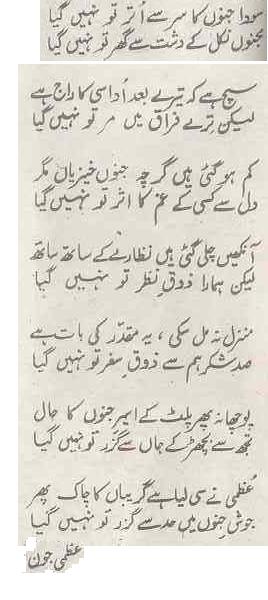 سودا جنوں کا سر سے اُتر تو نہیں گیا
مجنوں نکل کے دشت سے گھر تو نہیں گیا
سچ ہے کہ تیرے بعد اُداسی کا راج ہے
لیکن ترے فراق میں مر تو نہیں گیا
کم ہو گئی ہیں گرچہ جنوں خیزیاں مگر
دل سے کسی کے غم کا اثر تو نہیں گیا
آنکھیں چلی گئی ہیں نظارے کے ساتھ ساتھ
لیکن ہمارا ذوقِ نظر تو نہیں گیا
منزل نہ مل سکی ، یہ مقدّر کی بات ہے
صد شکر ہم سے ذوقِ سفر تو نہیں گیا
پوچھا نہ پھر پلٹ کے اسیرِ جنوں کا حال
تجھ سے بچھڑ کے جاں سے گزر تو نہیں گیا
عُظمٰی نے سی لیا ہے گریباں کا چاک پھر
جوشِ جنوں میں حد سے گزر تو نہیں گیا
عظمیٰ جون